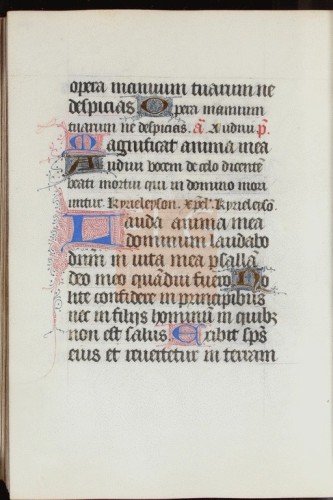 opera manuum tuarum ne
despicias Opera manuum
tuarum ne despicias. a Audiui p.
Magnificat anima mea
Audiui vocem de celo dicentē
beati mortui qui in domino mori
untur. Kyrieleyson. xp̄el'. Kyrieleẏsō.
Lauda anima mea
dominum laudabo
dnm in vita mea psallā
deo meo quādiu fuero No
lite confidere in principibus
nec in filijs hominū in quibz
non est salus. Exibit sp̄s
eius et reuertetur in terram